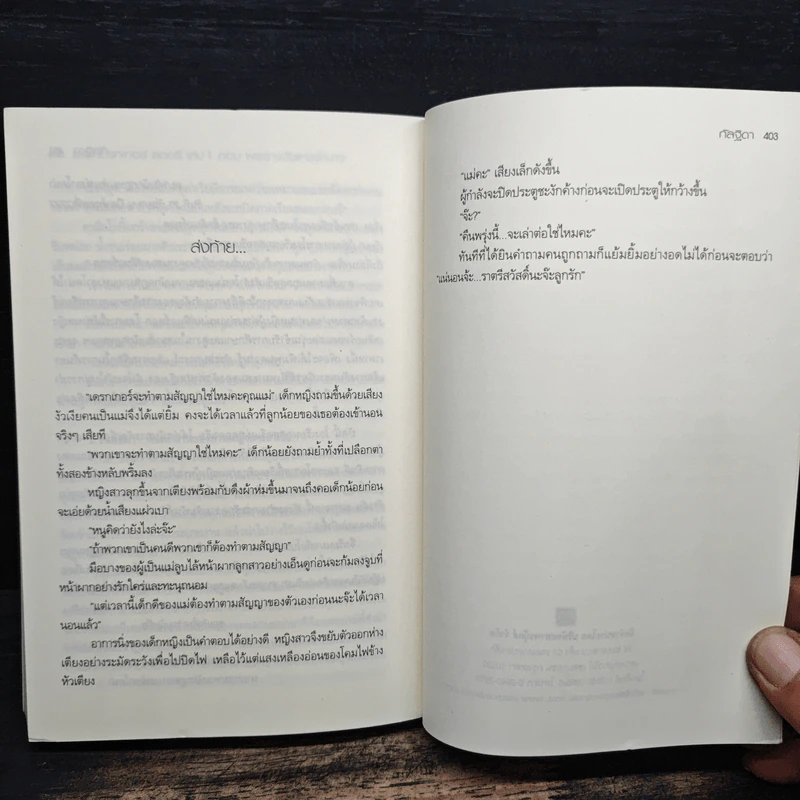 ส่งท้าย...
"เดรกเกอร์จะทำตามสัญญาใช่ไหมคะคุณแม่" เด็กหญิงถามขึ้นด้วยเสียง
งัวเงียคนเป็นแม่จึงได้แต่ยิ้ม คงจะได้เวลาแล้วที่ลูกน้อยของเธอต้องเข้านอน
จริงๆ เสียที
"พวกเขาจะทำตามสัญญาใช่ไหมคะ" เด็กน้อยยังถามย้ำทั้งที่เปลือกตา
ทั้งสองข้างหลับพริ้มลง
หญิงสาวลุกขึ้นจากเตียงพร้อมกับดึงผ้าห่มขึ้นมาจนถึงคอเด็กน้อยก่อน
จะเอ่ยด้วยน้ำเสียงแผ่วเบา
"หนูคิดว่ายังไงล่ะจ๊ะ"
"ถ้าพวกเขาเป็นคนดีพวกเขาก็ต้องทำตามสัญญา"
มือบางของผู้เป็นแม่ลูบไล้หน้าผากลูกสาวอย่างเอ็นดูก่อนจะก้มลงจูบที่
หน้าผากอย่างรักใคร่และทะนุถนอม
"แต่เวลานี้เด็กดีของแม่ต้องทำตามสัญญาของตัวเองก่อนนะจ๊ะได้เวลา
นอนแล้ว"
อาการนิ่งของเด็กหญิงเป็นคำตอบได้อย่างดี หญิงสาวจึงขยับตัวออกห่าง
เตียงอย่างระมัดระวังเพื่อไปปิดไฟ เหลือไว้แต่แสงเหลืองอ่อนของโคมไฟข้าง
หัวเตียง
กัลฐิดา 403
"แม่คะ" เสียงเล็กดังขึ้น
ผู้กำลังจะปิดประตูชะงักค้างก่อนจะเปิดประตูให้กว้างขึ้น
"จ๊ะ?"
"คืนพรุ่งนี้...จะเล่าต่อใช่ไหมคะ"
ทันทีที่ได้ยินคำถามคนถูกถามก็แย้มยิ้มอย่างอดไม่ได้ก่อนจะตอบว่า
"แน่นอนจ้ะ...ราตรีสวัสดิ์นะจ๊ะลูกรัก"